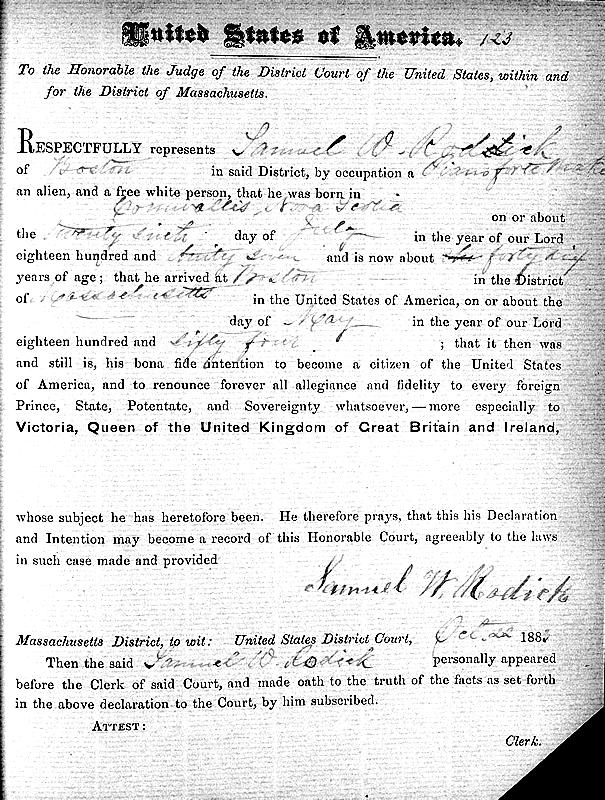 United States of America. 123
To the Honorable the Judge of the District Court of the United States, within and
for the District of Massachusetts.
RESPECTFULLY represents Samuel W. Rodick
of Boston in said District, by occupation a Pianoforte Make
an alien, and a free white person, that he was born in
Cornwallis, Nova Scotia on or about
the twenty sixth day of July in the year of our Lord
eighteen hundred and thirty seven and is now about forty six
years of age; that he arrived at Boston in the District
of Massachusetts in the United States of America, on or about the
day of May in the year of our Lord
eighteen hundred and fifty four ; that it then was
and still is, his bona fide intention to become a citizen of the United States
of America, and to renounce forever all allegiance and fidelity to every foreign
Prince, State, Potentate, and Sovereignty whatsoever,—more especially to
Victoria, Queen of the United Kingdom of Great Britain and Ireland,
whose subject he has heretofore been. He therefore prays, that this his Declaration
and Intention may become a record of this Honorable Court, agreeably to the laws
in such case made and provided
Samuel W. Rodick
Massachusetts District, to wit: United States District Court, Oct. 22 1883
Then the said Samuel W. Rodick personally appeared
before the Clerk of said Court, and made oath to the truth of the facts as set forth
in the above declaration to the Court, by him subscribed.
ATTEST:
Clerk.